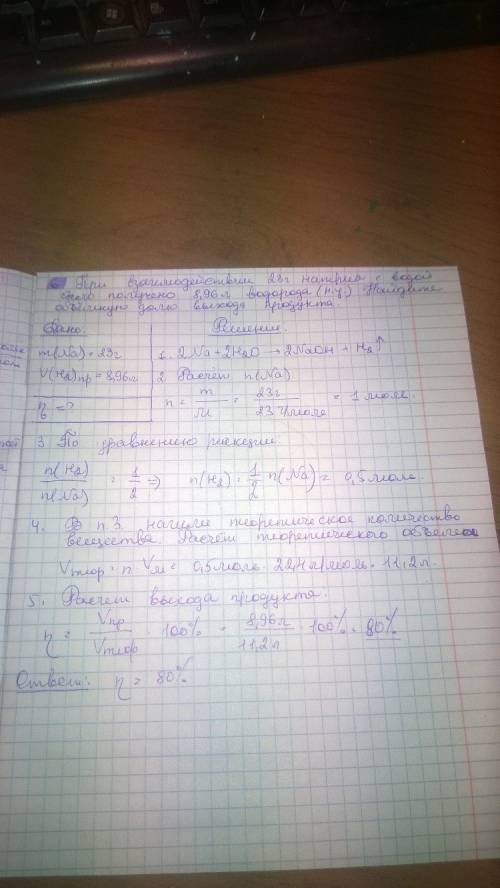 При взаимодействии 23г натрия с водой
было получено 8,96л водорода (н.у.) Найдите
объемную долю выхода продукта.
Дано: Решение:
m(Na) = 23г 1. 2Na + 2H₂O → 2NaOH + H₂↑
V(H₂)пр = 8,96л 2 Расчет n(Na)
η = ? n = m/M = 23г / 23 г/моль = 1 моль.
3 По уравнению реакции
n(H₂)/n(Na) = 1/2 ⇒ n(H₂) = 1/2 n(Na) = 0,5 моль.
4. В п.3. нашли теоретическое количество
вещества. Расчет теоретического объема
Vтеор = n Vм = 0,5 моль · 22,4 л/моль = 11,2 л.
5. Расчет выхода продукта.
η = Vпр/Vтеор · 100% = 8,96л/11,2л · 100% = 80%
Ответ: η = 80%